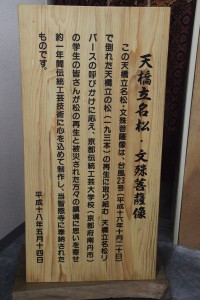 天橋立名松・文殊菩薩像
この天橋立名松・文殊菩薩像は、台風23号(平成十六年十月二十日)
で倒れた天橋立の松(一九三本)の再生に取り組む 天橋立名松リ
バースの呼びかけに応え、京都伝統工芸大学校(京都府南丹市)
の学生の皆さんが松の再生と被災された方々の鎮魂に思いを寄せ
約一年間伝統工芸技術に心を込めて制作し、当智恩寺に奉納された
ものです。
平成十八年五月十四日